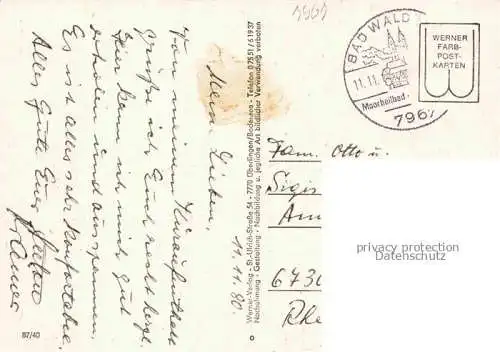 Meine Lieben,
11.11.80.
Von meinem Kuraufenthalt
grüße ich Euch recht herzl.
Hier kann ich mich gut
erholen und ausspannen.
Es ist alles sehr komfortabel.
Alles Gute Euer
87/40
Werner-Verlag - St.-Ulrich-Straße 54 - 7770 Überlingen/Bodensee - Telefon 07551/61937
Nachahmung - Gestaltung - Nachbildung u. jegliche Art bildlicher Verwendung verboten
BAD WALD
11.11.
Moorheilbad
7967
WERNER
FARB-
POST-
KARTEN
Fam. Otto u.
Sigis
Am
6730
Rhe
privacy protection
Datenschutz